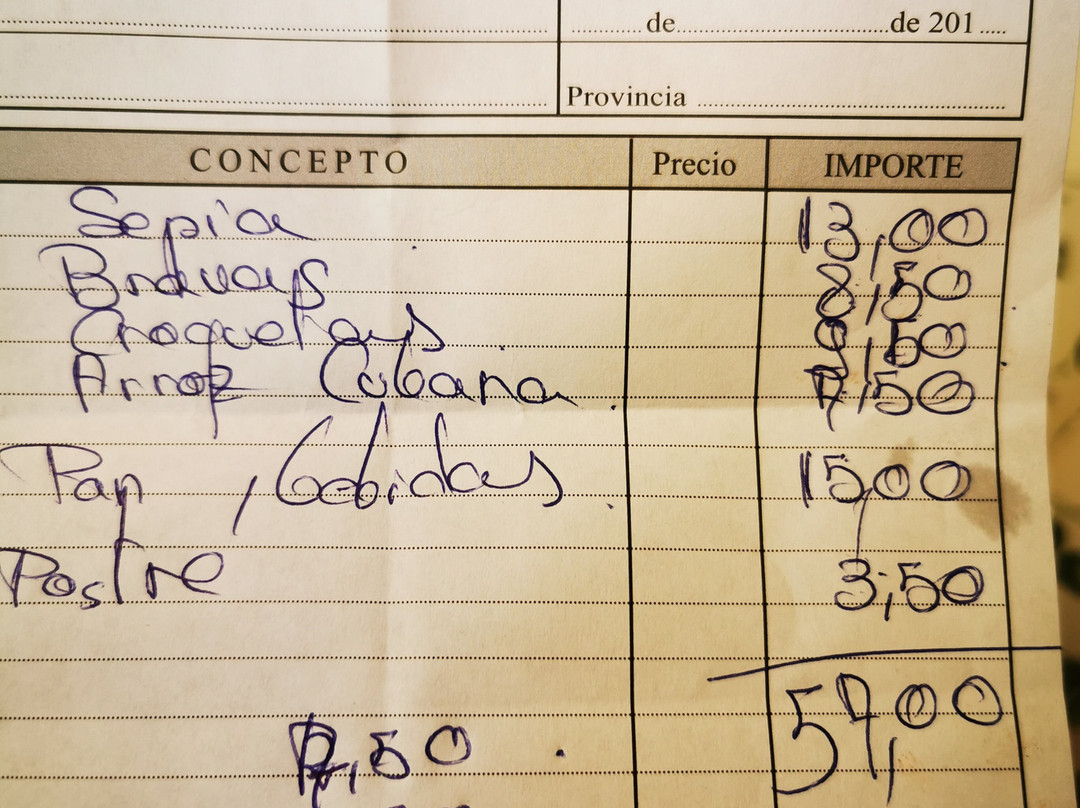 de de 201
Provincia
CONCEPTO Precio IMPORTE
Sepia 13,00
Bravas 8,50
Croquetas 9,50
Arroz Cubana 7,50
Pan, bebidas 15,00
Postre 3,50
57,00
,50